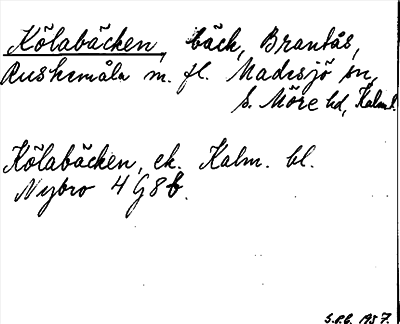 Kölabäcken, bäck, Brantås,
Ruskemåla m. fl. Madesjö sn,
S. Möre hd, Kalm.l.
Kölabäcken, ek. Kalm. bl.
Nybro 4 G 8 b.
S.P.C. 1957.